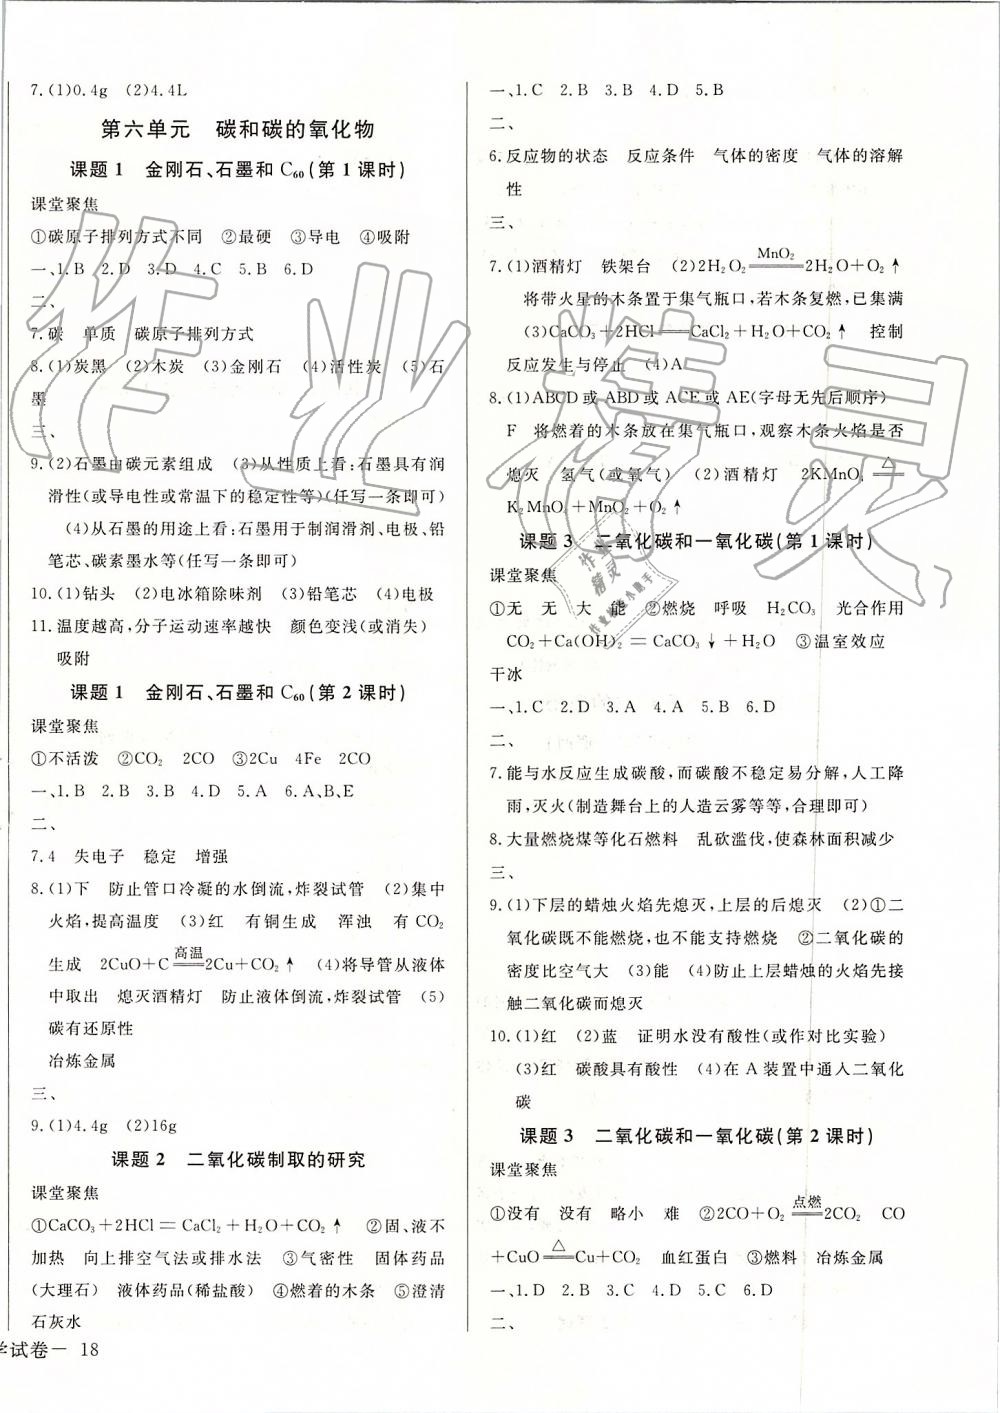 7.(1)0.4g (2)4.4L
第六单元 碳和碳的氧化物
课题1 金刚石、石墨和C₆₀(第1课时)
课堂聚焦
①碳原子排列方式不同 ②最硬 ③导电 ④吸附
一、1.B 2.D 3.D 4.C 5.B 6.D
二、
7.碳 单质 碳原子排列方式
8.(1)炭黑 (2)木炭 (3)金刚石 (4)活性炭 (5)石
墨
三、
9.(2)石墨由碳元素组成 (3)从性质上看:石墨具有润
滑性(或导电性或常温下的稳定性等)(任写一条即可)
(4)从石墨的用途上看:石墨用于制润滑剂、电极、铅
笔芯、碳素墨水等(任写一条即可)
10.(1)钻头 (2)电冰箱除味剂 (3)铅笔芯 (4)电极
11.温度越高,分子运动速率越快 颜色变浅(或消失)
吸附
课题1 金刚石、石墨和C₆₀(第2课时)
课堂聚焦
①不活泼 ②CO₂ 2CO ③2Cu 4Fe 2CO
一、1.B 2.B 3.B 4.D 5.A 6.A、B、E
二、
7.4 失电子 稳定 增强
8.(1)下 防止管口冷凝的水倒流,炸裂试管 (2)集中
火焰,提高温度 (3)红 有铜生成 浑浊 有CO₂
生成 2CuO+C 高温═ 2Cu+CO₂↑ (4)将导管从液体
中取出 熄灭酒精灯 防止液体倒流,炸裂试管 (5)
碳有还原性
冶炼金属
三、
9.(1)4.4g (2)16g
课题2 二氧化碳制取的研究
课堂聚焦
①CaCO₃+2HCl═CaCl₂+H₂O+CO₂↑ ②固、液不
加热 向上排空气法或排水法 ③气密性 固体药品
(大理石) 液体药品(稀盐酸) ④燃着的木条 ⑤澄清
石灰水
学试卷— 18
一、1.C 2.B 3.B 4.D 5.B
二、
6.反应物的状态 反应条件 气体的密度 气体的溶解
性
三、
7.(1)酒精灯 铁架台 (2)2H₂O₂ MnO₂═ 2H₂O+O₂↑
将带火星的木条置于集气瓶口,若木条复燃,已集满
(3)CaCO₃+2HCl═CaCl₂+H₂O+CO₂↑ 控制
反应发生与停止 (4)A
8.(1)ABCD或ABD或ACE或AE(字母无先后顺序)
F 将燃着的木条放在集气瓶口,观察木条火焰是否
熄灭 氢气(或氧气) (2)酒精灯 2KMnO₄ △═
K₂MnO₄+MnO₂+O₂↑
课题3 二氧化碳和一氧化碳(第1课时)
课堂聚焦
①无 无 大 能 ②燃烧 呼吸 H₂CO₃ 光合作用
CO₂+Ca(OH)₂═CaCO₃↓+H₂O ③温室效应
干冰
一、1.C 2.D 3.A 4.A 5.B 6.D
二、
7.能与水反应生成碳酸,而碳酸不稳定易分解,人工降
雨,灭火(制造舞台上的人造云雾等等,合理即可)
8.大量燃烧煤等化石燃料 乱砍滥伐,使森林面积减少
三、
9.(1)下层的蜡烛火焰先熄灭,上层的后熄灭 (2)①二
氧化碳既不能燃烧,也不能支持燃烧 ②二氧化碳的
密度比空气大 (3)能 (4)防止上层蜡烛的火焰先接
触二氧化碳而熄灭
10.(1)红 (2)蓝 证明水没有酸性(或作对比实验)
(3)红 碳酸具有酸性 (4)在A装置中通入二氧化
碳
课题3 二氧化碳和一氧化碳(第2课时)
课堂聚焦
①没有 没有 略小 难 ②2CO+O₂ 点燃═ 2CO₂ CO
+CuO △═ Cu+CO₂ 血红蛋白 ③燃料 冶炼金属
一、1.D 2.D 3.C 4.D 5.D 6.D
二、
作业精灵